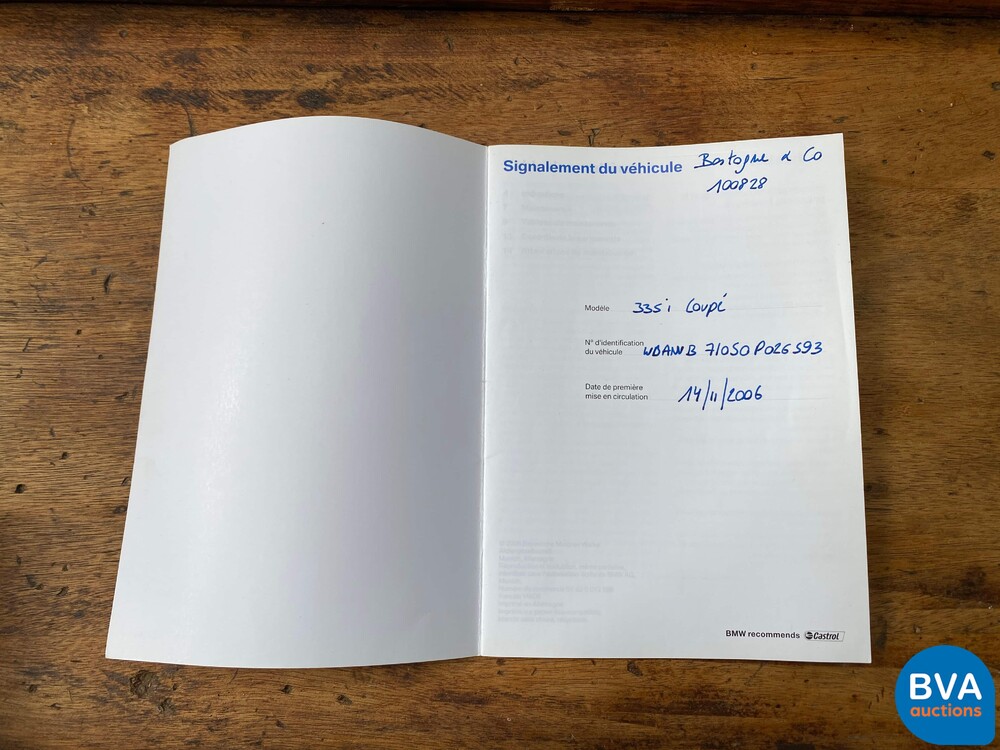 Signalement du véhicule Bastogne & Co
100828
Modèle 335i Coupé
N° d'identification
du véhicule WBAWB 71050P026593
Date de première
mise en circulation 14/11/2006
BMW recommends Castrol
BVA
auctions